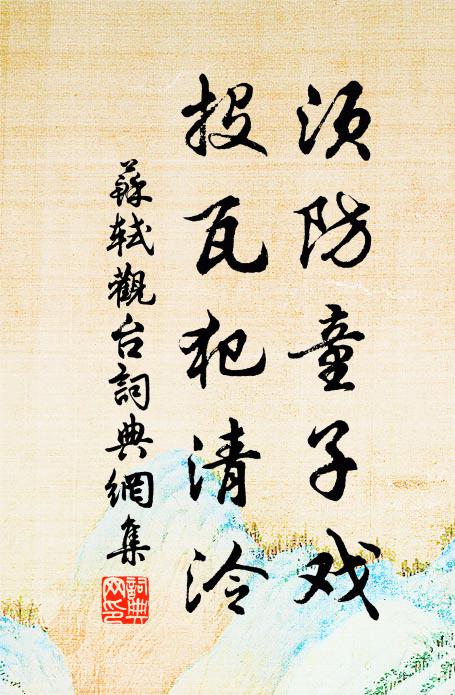 须防童子戏
投瓦犯清泠
蘇軾觀台詞典網集
詞典